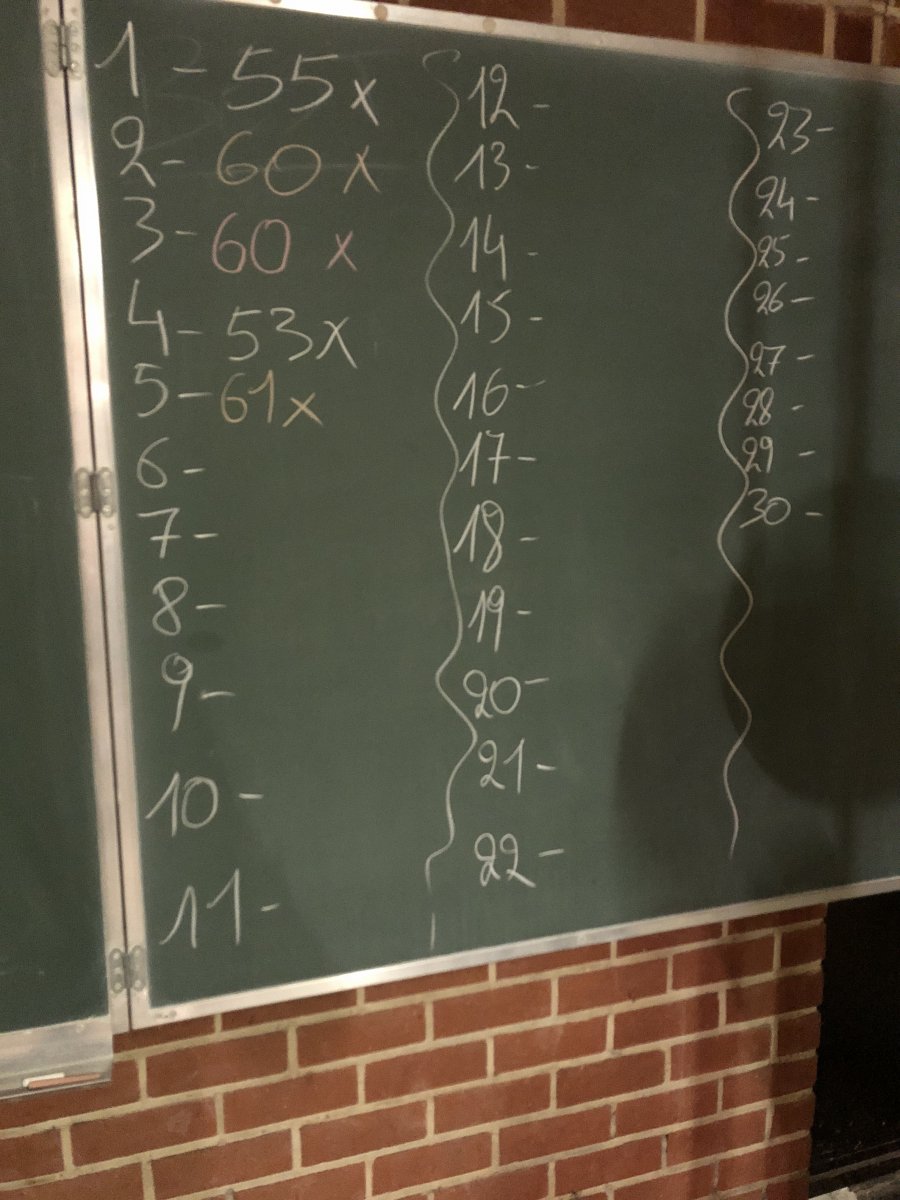 1 - 55 x
2 - 60 x
3 - 60 x
4 - 53 x
5 - 61 x
6 -
7 -
8 -
9 -
10 -
11 -
12 -
13 -
14 -
15 -
16 -
17 -
18 -
19 -
20 -
21 -
22 -
23 -
24 -
25 -
26 -
27 -
28 -
29 -
30 -